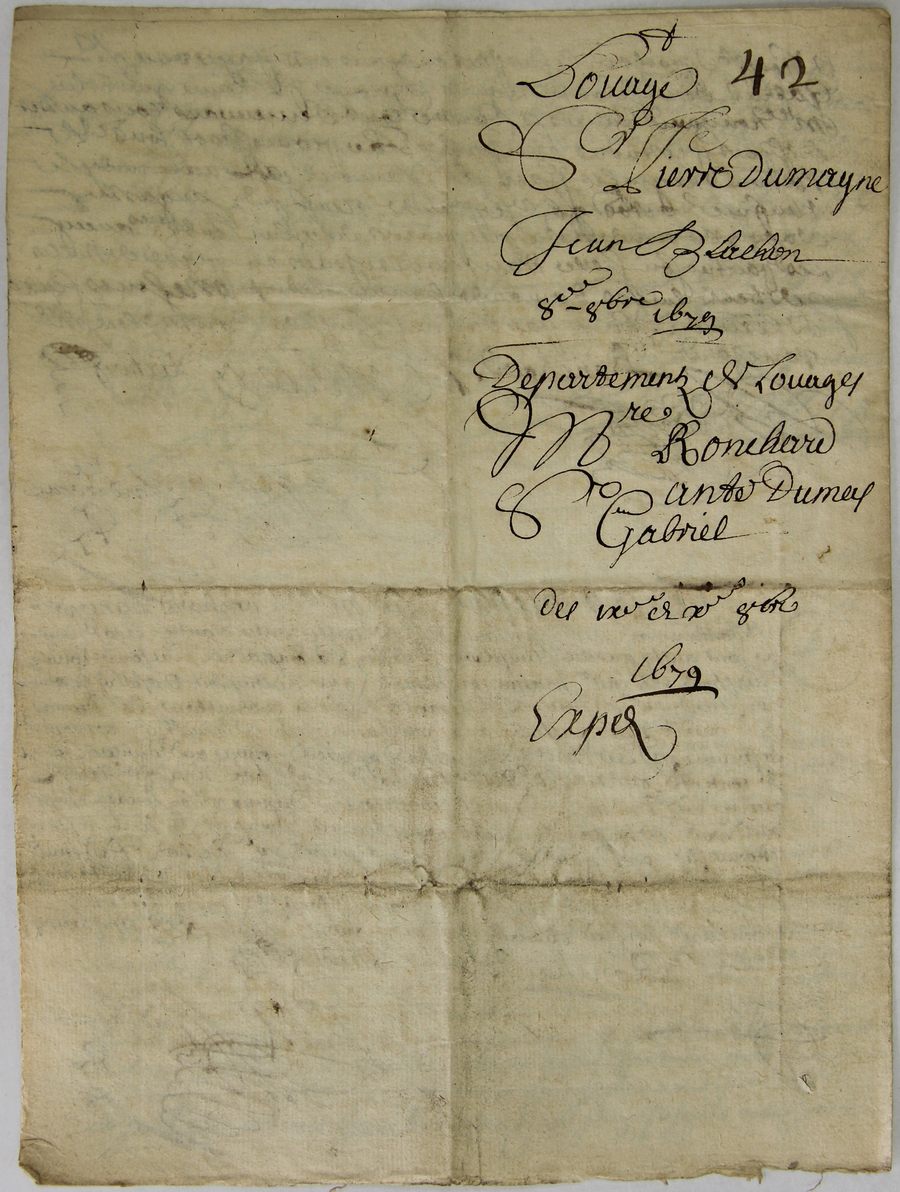 Louage 42
Sr
Pierre Dumayne
Jean Blachon
8e 8bre 1679
Departement de Louages
Mre Ronchard
Gabriel
des ixe et xe 8bre
1679
Exped